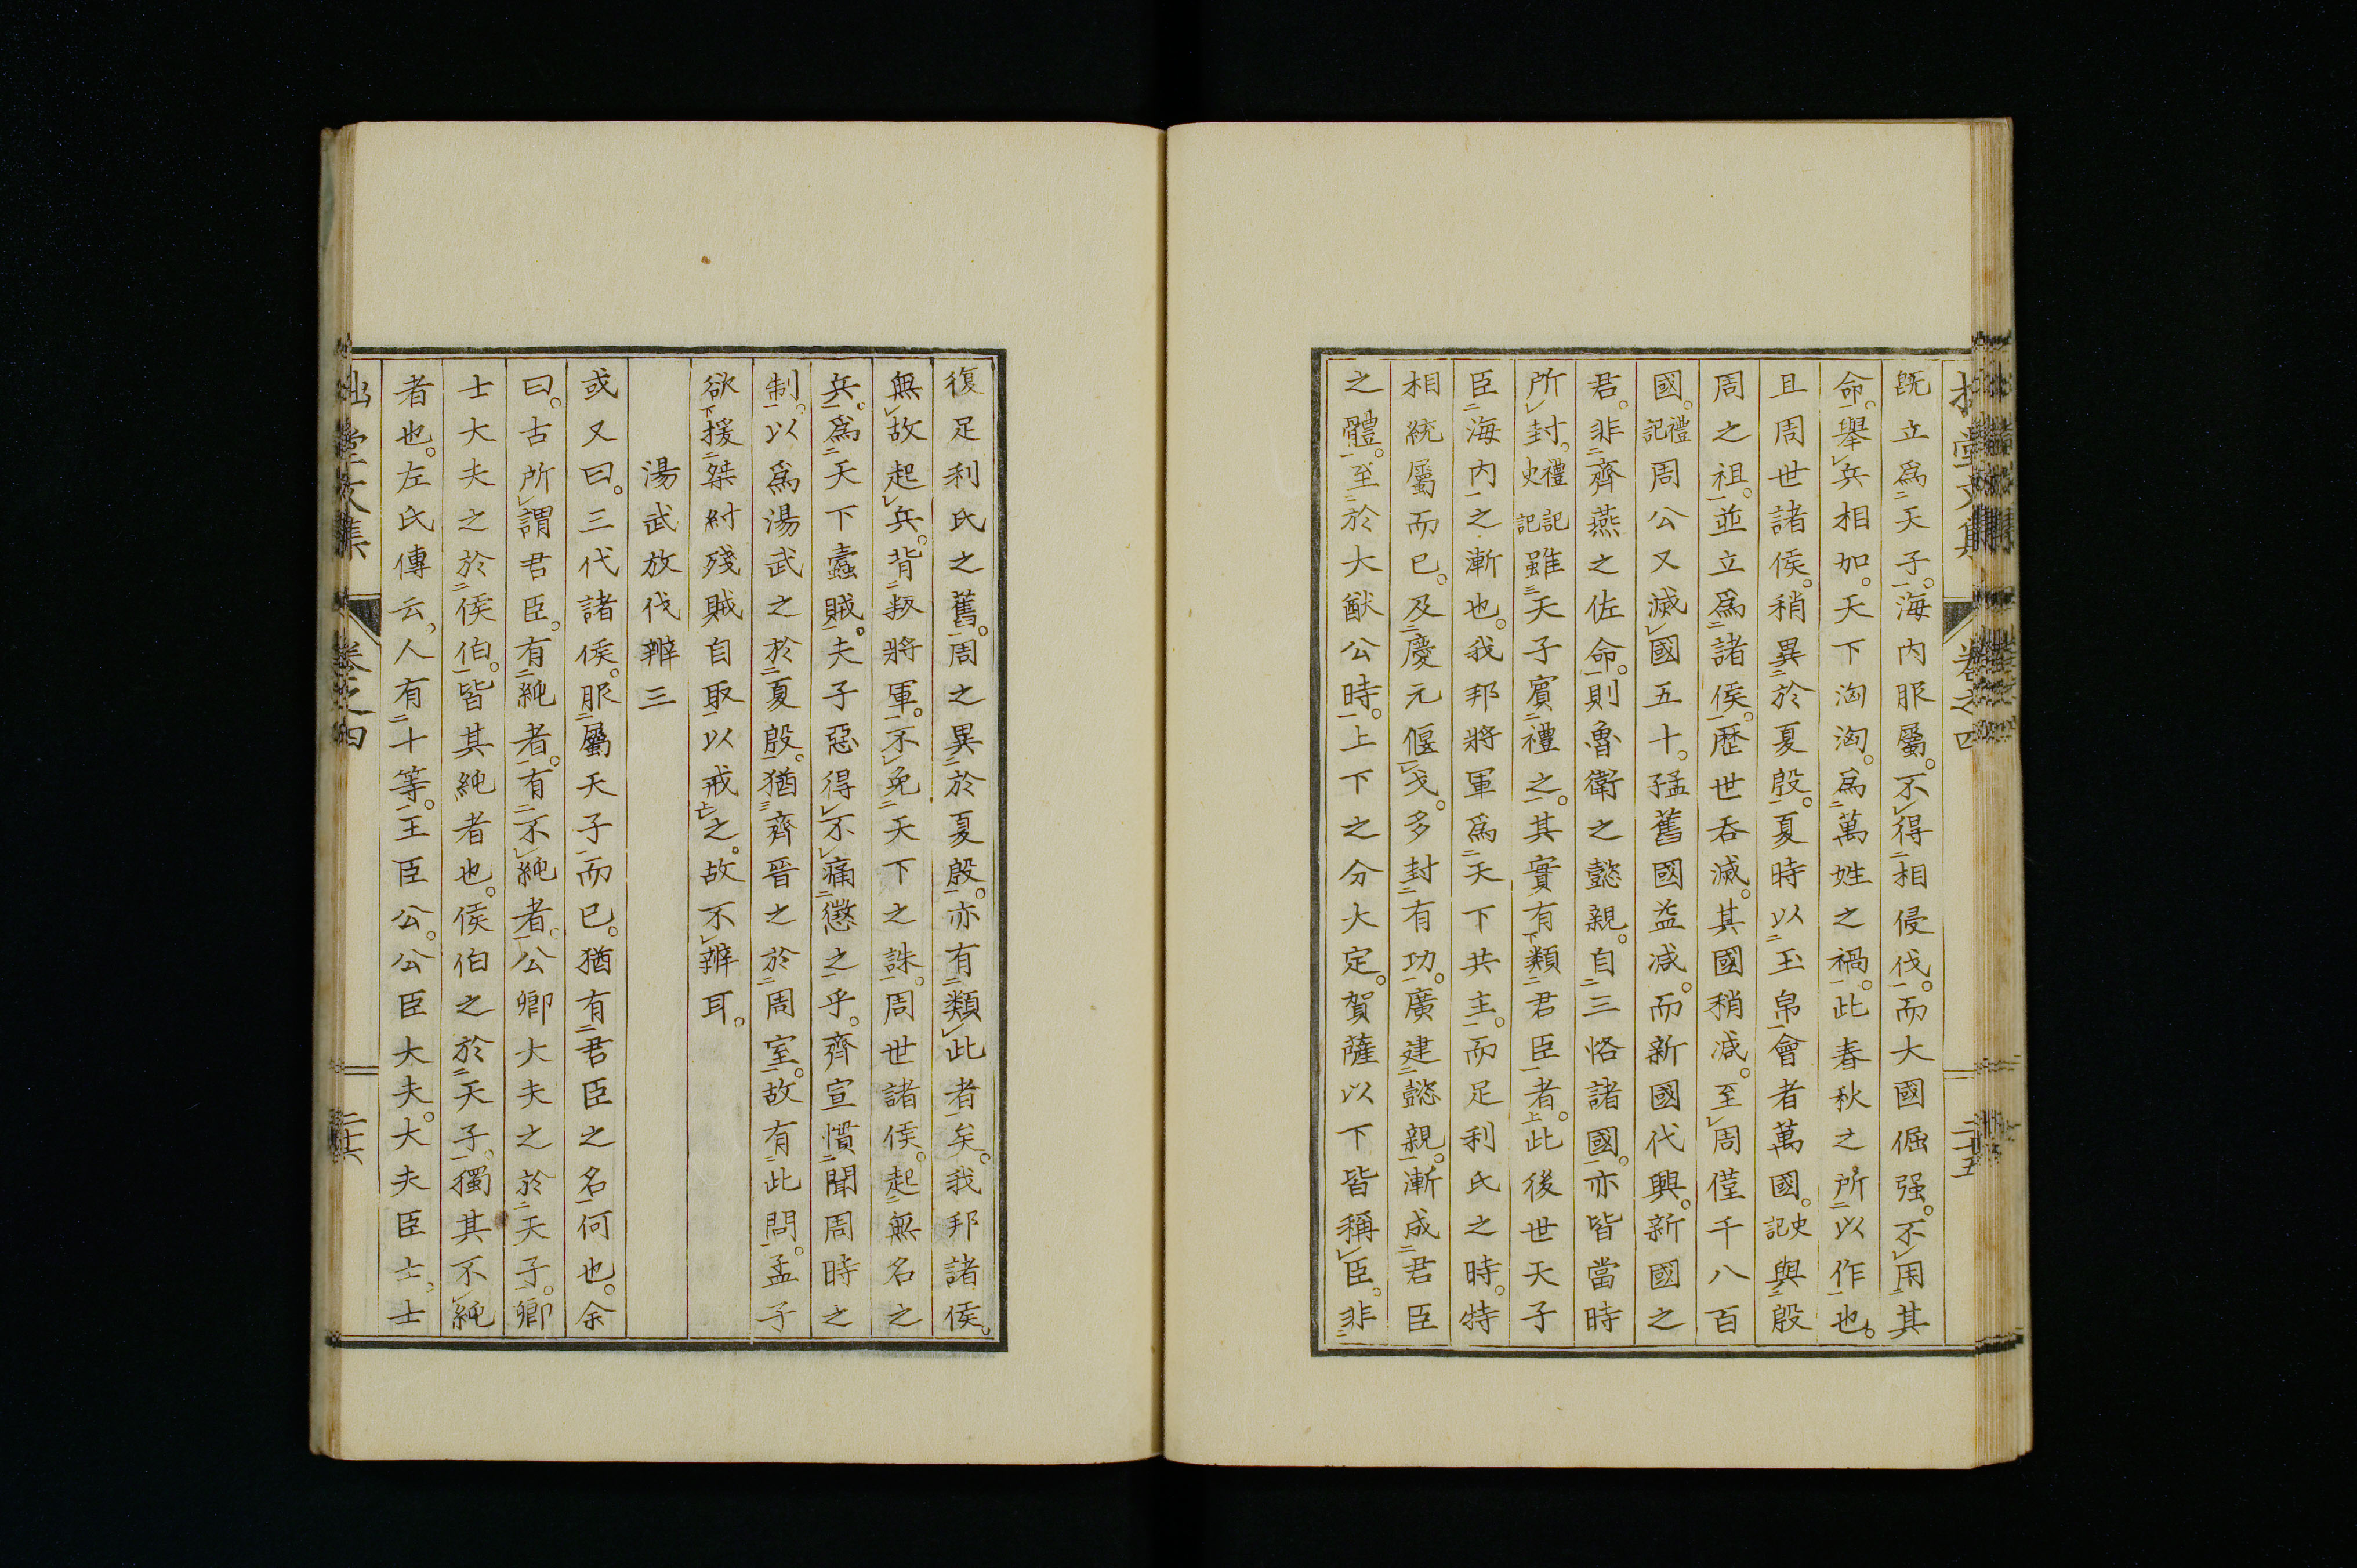 既立爲天子。海内服屬。不得相侵伐。而大國倔强。不用其
命。舉兵相加。天下洶洶。爲萬姓之禍。此春秋之所以作也。
且周世諸侯。稍異於夏殷。夏時以玉帛會者萬國。史記與殷
周之祖。並立爲諸侯。歷世吞滅。其國稍減。至周僅千八百
國。禮記周公又滅國五十。孟舊國益减。而新國代興。新國之
君。非齊燕之佐命。則魯衛之懿親。自三恪諸國。亦皆當時
所封。禮記史記雖天子賓禮之。其實有類君臣者。此後世天子
臣海内之漸也。我邦將軍爲天下共主。而足利氏之時。特
相統屬而已。及慶元偃戈。多封有功。廣建懿親。漸成君臣
之體。至於大猷公時。上下之分大定。賀薩以下皆稱臣。非
復足利氏之舊。周之異於夏殷。亦有類此者矣。我邦諸侯。
無故起兵。背叛將軍。不免天下之誅。周世諸侯。起無名之
兵。爲天下蠹賊。夫子惡得不痛懲之乎。齊宣慣聞周時之
制。以爲湯武之於夏殷。猶齊晉之於周室。故有此問。孟子
欲援桀紂殘賊自取以戒之。故不辨耳。
湯武放伐辨三
或又曰。三代諸侯。服屬天子而已。猶有君臣之名何也。余
曰。古所謂君臣。有純者。有不純者。公卿大夫之於天子。卿
士大夫之於侯伯。皆其純者也。侯伯之於天子。獨其不純
者也。左氏傳云、人有十等。王臣公。公臣大夫。大夫臣士、士
堂文集 卷之四 二十五
堂文集 卷之四 二十六